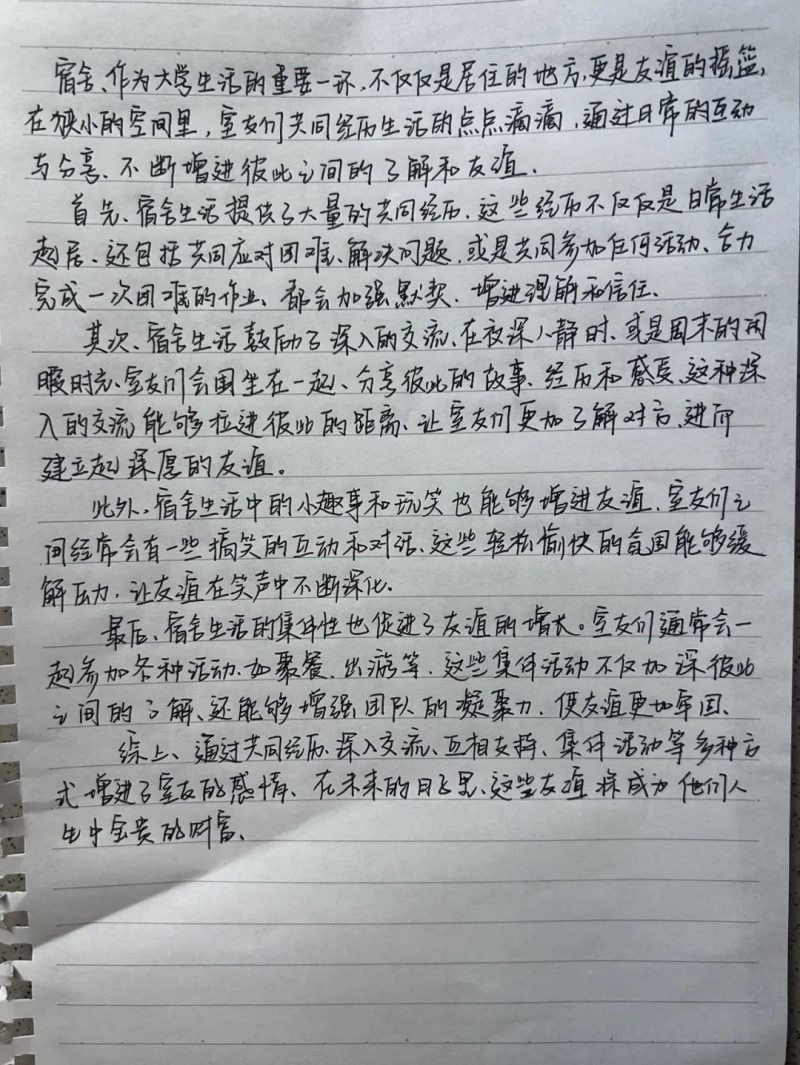 宿舍、作为大学生活的重要一环,不仅仅是居住的地方,更是友谊的摇篮,
在狭小的空间里,室友们共同经历生活的点点滴滴,通过日常的互动
与分享、不断增进彼此之间的了解和友谊.
首先、宿舍生活提供了大量的共同经历.这些经历不仅仅是日常生活
起居、还包括共同应对困难、解决问题.或是共同参加任何活动、合力
完成一次困难的作业、都会加强默契.增进理解和信任.
其次、宿舍生活鼓励了深入的交流、在夜深人静时、或是周末的闲
暇时光、室友们会围坐在一起、分享彼此的故事、经历和感受、这种深
入的交流能够拉进彼此的距离、让室友们更加了解对方、进而
建立起深厚的友谊。
此外,宿舍生活中的小趣事和玩笑也能够增进友谊.室友们之
间经常会有一些搞笑的互动和对话、这些轻松愉快的氛围能够缓
解压力.让友谊在笑声中不断深化.
最后、宿舍生活的集体性也促进了友谊的增长。室友们通常会一
起参加各种活动、如聚餐、出游等.这些集体活动不仅加深彼此
之间的了解、还能够增强团队的凝聚力.使友谊更加牢固、
综上、通过共同经历、深入交流、互相支持、集体活动等多种方
式增进了室友的感情、在未来的日子里、这些友谊将成为他们人
生中宝贵的财富、